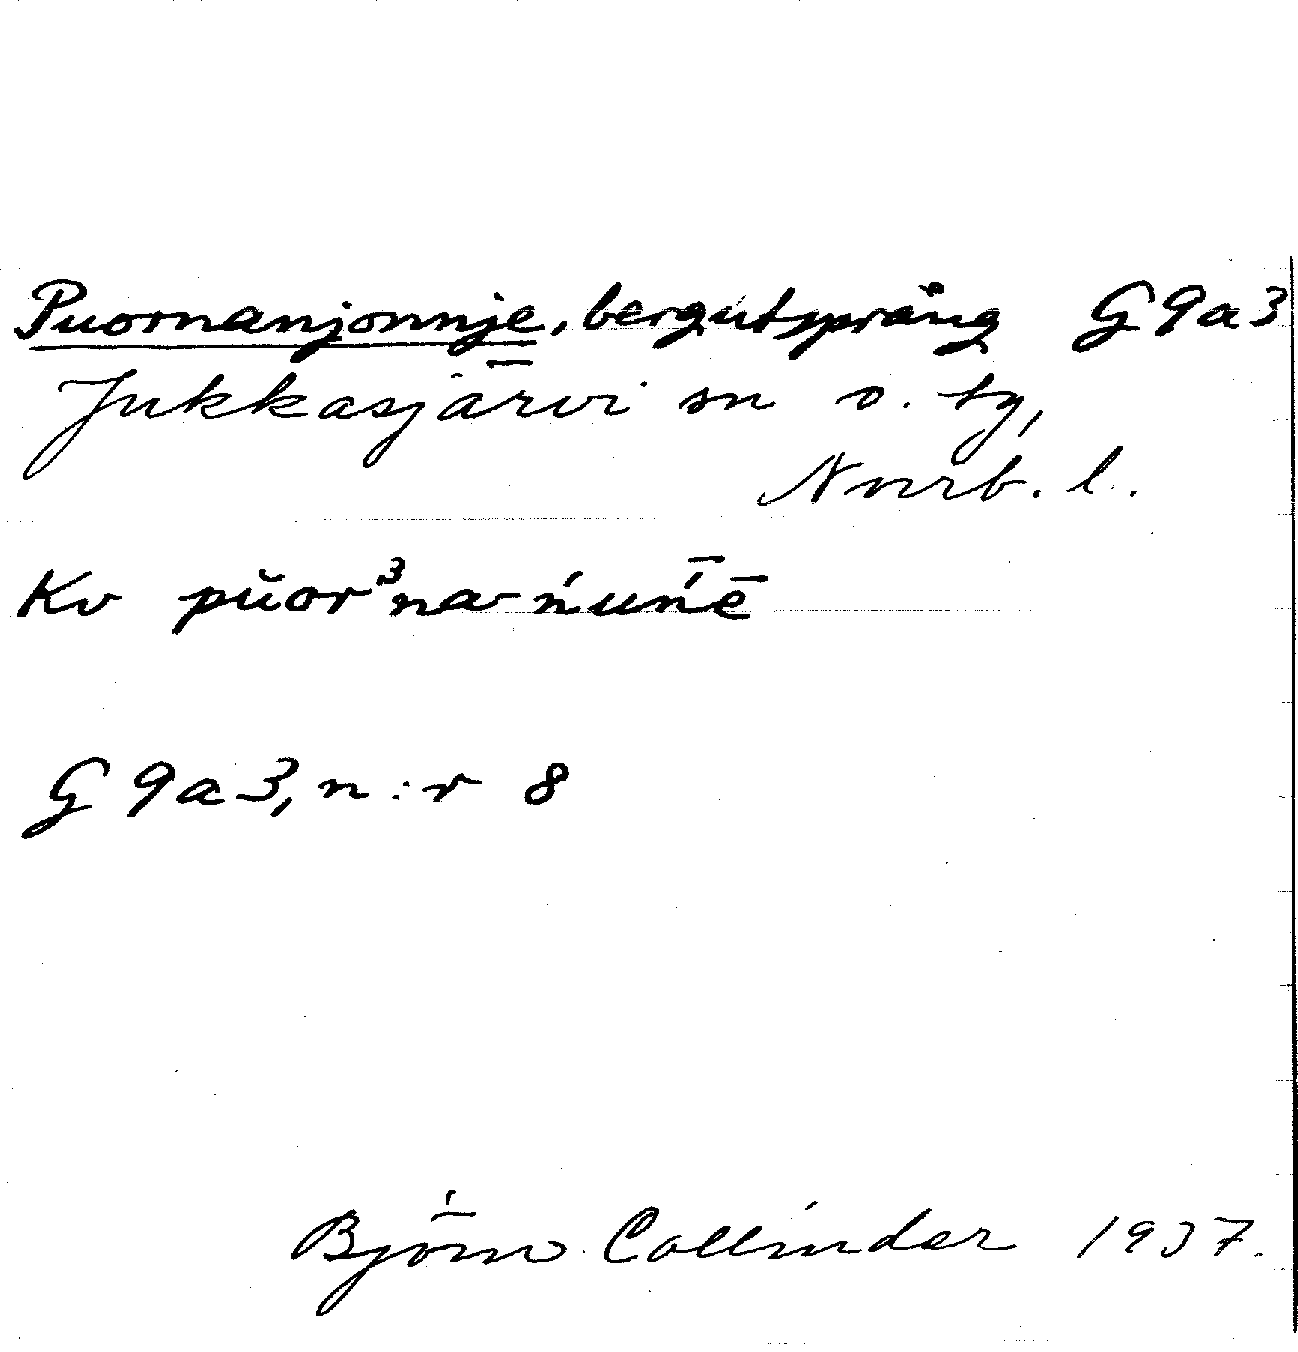 Puornanjonnje, bergutsprång G9a3
Jukkasjärvi sn o. tg,
Norrb. l.
Kv pŭor³na-ńuń̄ē
G9a3, n:r 8
Björn Collinder 1937.